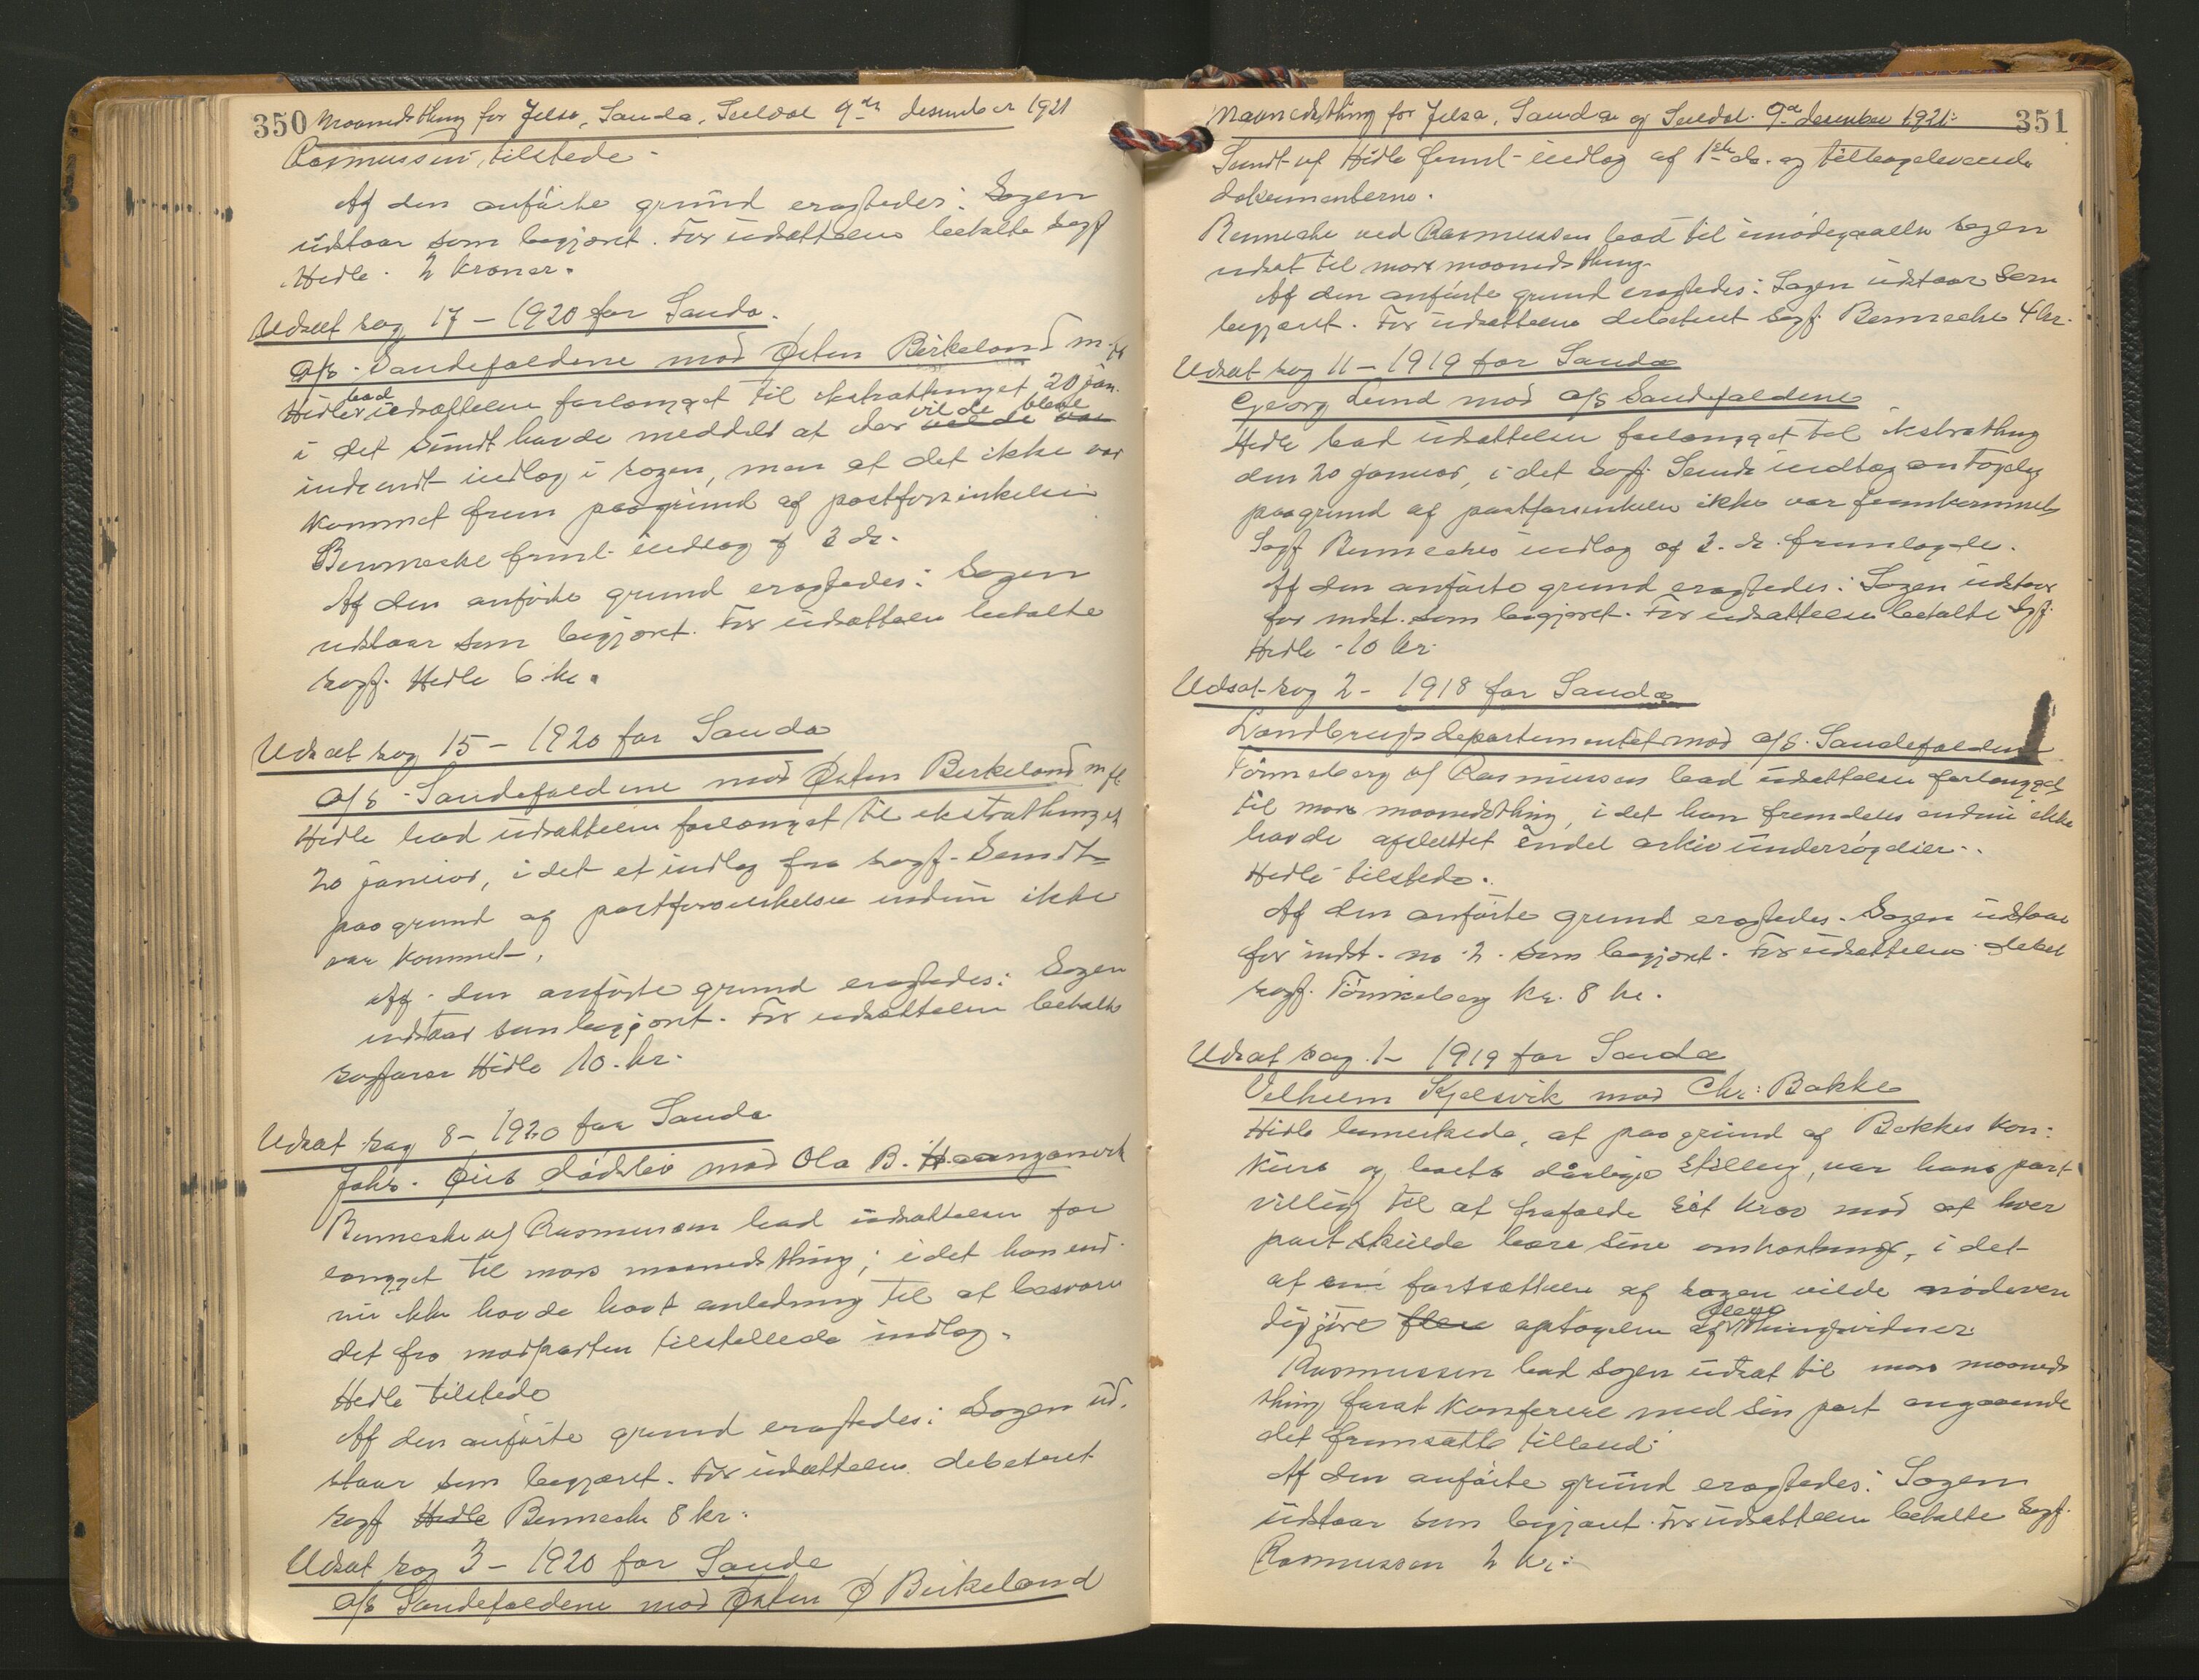 350 Maanedsthing for Jelsa, Sauda, Suldal 9de desember 1921
Rasmussen tilstede.
Af den anførte grund eragtedes: Sagen
udstaar som begjæret. For udsættelsen betalte sagf
Hidle 2 kroner.
Udsat sag 17 – 1920 for Sauda.
a/s. Saudefaldene mod Østen Birkeland m. fl
Hidle bad udsættelsen forlænget til ekstrathinget 20 jan.
i det Sundt havde meddelt at der vilde blive
indsendt indlæg i sagen, men at det ikke var
kommet frem paagrund af postforsinkelse
Bennecke freml. indlæg af 2 ds.
Af den anførte grund eragtedes: Sagen
udstaar som begjæret. For udsættelsen betalte
sagf. Hidle 6 kr.
Udsat sag 15 – 1920 for Sauda
a/s Saudefaldene mod Østen Birkeland m fl
Hidle bad udsættelsen forlænget til ekstrathinget
20 januar, i det et indlæg fra sagf. Sundt
paa grund af postforsinkelse endnu ikke
var kommet.
Af den anførte grund eragtedes: Sagen
udstaar som begjæret. For udsættelsen betalte
sagfører Hidle 10 kr.
Udsat sag 8 – 1920 for Sauda
Johs. Øies dødsbo mod Ola B.
Bennecke v/ Rasmussen bad udsættelsen for
længget til mars maanedsthing, i det han end
nu ikke havde havt anledning til at besvare
det fra modparten tilstillede indlæg.
Hidle tilstede
Af den anførte grund eragtedes: Sagen ud
staar som begjæret. For udsættelsen debeteret
sagf Hidle Bennecke 8 kr.
Udsat sag 3 – 1920 for Sauda
a/s Saudefaldene mod Østen Ø Birkeland
Maanedsthing for Jelsa, Sauda og Suldal. 9de desember 1921. 351
Sundt v/ Hidle freml. indlæg af 1ste ds. og tilbageleverede
dokumenterne.
Bennecke ved Rasmussen bad til imødegaaelse sagen
udsat til mars maanedsthing.
Af den anførte grund eragtedes: Sagen udstaar som
begjæret. For udsættelsen debeteret sagf. Bennecke 4 kr.
Udsat sag 11 – 1919 for Sauda
Georg Lund mod a/s Saudefaldene
Hidle bad udsættelsen forlænget til ekstrathing
den 20 januar, i det sagf. Sundts indlæg antagelig
paagrund af postforsinkelse ikke var fremkommet
Sagf Benneckes indlæg af 2. ds. fremlagdes.
Af den anførte grund eragtedes: Sagen udstaar
for indst. som begjæret. For udsættelsen betalte sagf.
Hidle 10 kr.
Udsat sag 2 – 1918 for Sauda
Landbrugsdepartementet mod a/s. Saudefaldene
Tønnesberg v/ Rasmussen bad udsættelsen forlænget
til mars maanedsthing, i det han fremdeles endnu ikke
havde afsluttet endel arkivundersøgelser.
Hidle tilstede.
Af den anførte grund eragtedes. Sagen udstaar
for indst. no 2. som begjæret. For udsættelsen debet
sagf. Tønnesberg kr. 8 kr.
Udsat sag 1 – 1919 for Sauda
Vilhelm Kjelsvik mod Chr: Bakke
Hidle bemerkede, at paa grund af Bakkes kon:
kurs og boets dårlige stilling, var hans part
villig til at frafalde sit krav mod at hver
part skulde bære sine omkostninger, i det
at en fortsættelse af sagen vilde nødven
diggjøre flere optagelse af flere thingsvidner.
Rasmussen bad sagen udsat til mars maaneds
thing forat konferere med sin part angaaende
det fremsatte tilbud.
Af den anførte grund eragtedes: Sagen
udstaar som begjæret. For udsættelsen betalte sagf.
Rasmussen 2 kr.